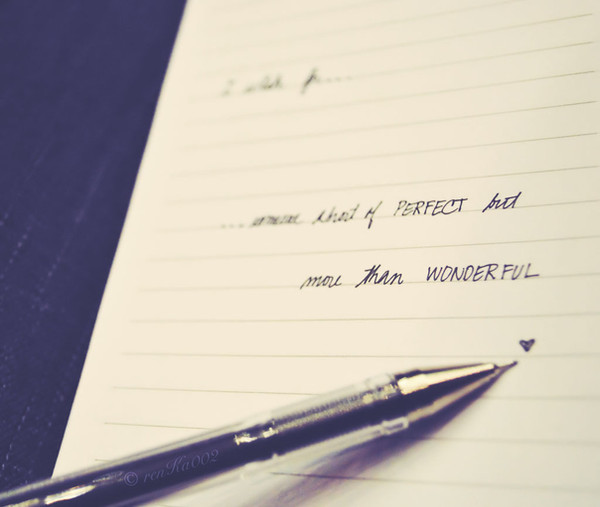 I wish for...
...someone short of PERFECT but
more than WONDERFUL
© renKa002